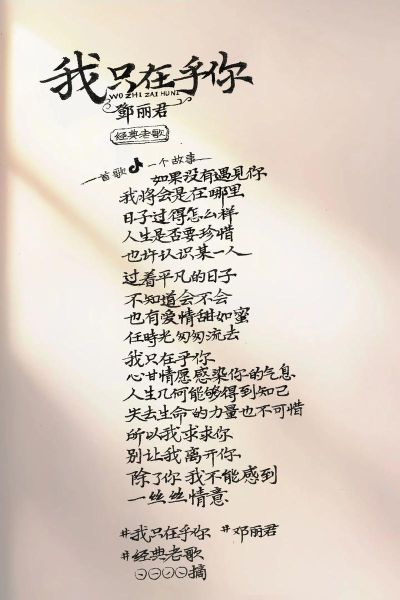 我只在乎你
WO ZHI ZAI HUNI
鄧丽君
经典老歌
一首歌 一个故事
如果没有遇見你
我将会是在哪里
日子过得怎么样
人生是否要珍惜
也许认识某一人
过着平凡的日子
不知道会不会
也有爱情甜如蜜
任時光匆匆流去
我只在乎你
心甘情愿感染你的气息
人生几何能够得到知己
失去生命的力量也不可惜
所以我求求你
别让我离开你
除了你我不能感到
一丝丝情意
#我只在乎你 #邓丽君
#经典老歌
摘